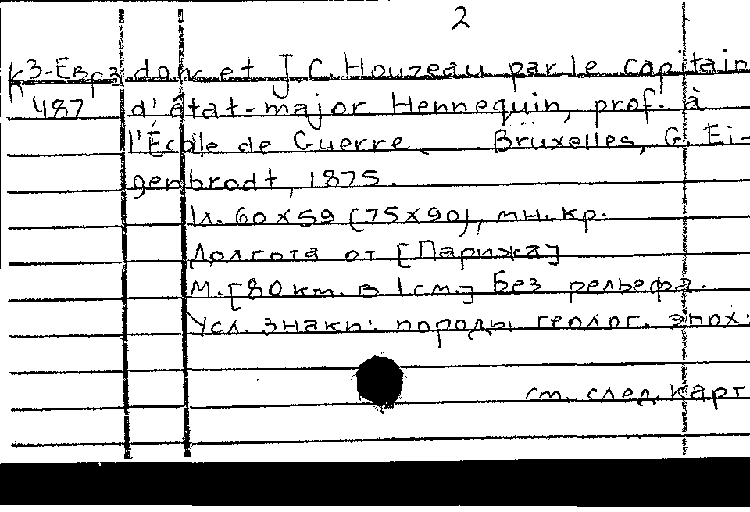 2
К3-Евр3 donc et J.C. Houzeau par le capitain
487 d'état-major Hennequin, prof. à
l'École de Guerre. Bruxelles, G. Ei-
genbrodt, 1875.
1л. 60x59 (75x90), мн.кр.
Долгота от [Парижа]
М.[80км. в 1см.] без рельефа.
Усл. знаки: породы геолог. эпох.
см. след. карт